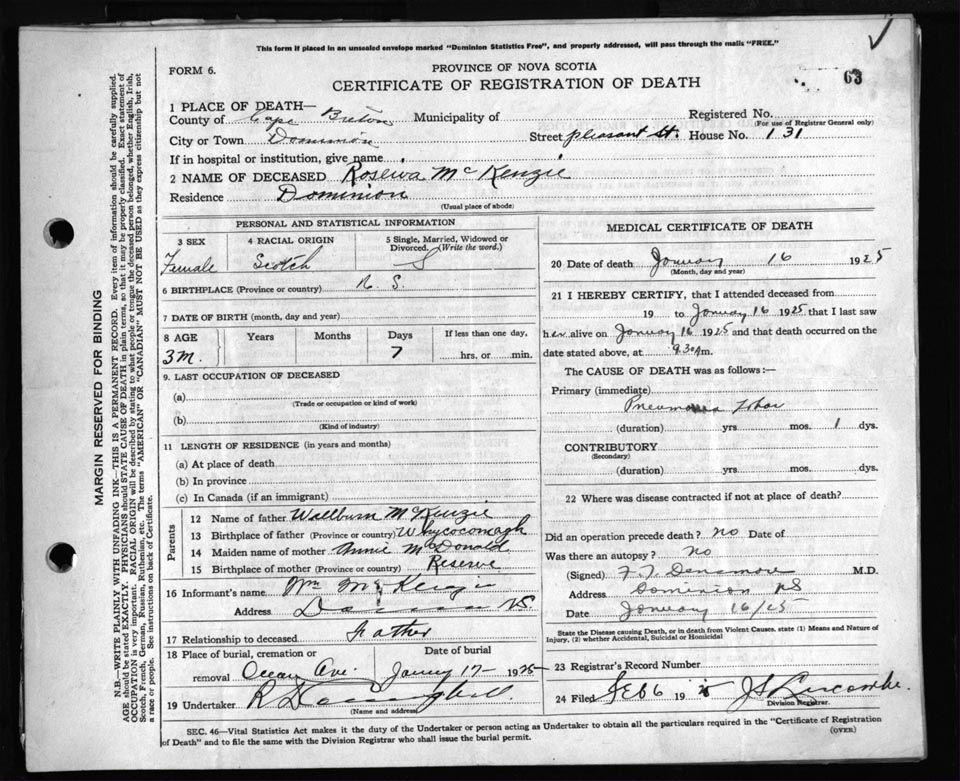 This form if placed in an unsealed envelope marked "Dominion Statistics Free", and properly addressed, will pass through the mails "FREE."
FORM 6.
PROVINCE OF NOVA SCOTIA
CERTIFICATE OF REGISTRATION OF DEATH
63
1 PLACE OF DEATH—
County of Cape Breton Municipality of Registered No.
(For use of Registrar General only)
City or Town Dominion Street pleasant St. House No. 131
If in hospital or institution, give name
2 NAME OF DECEASED McKenzie
Residence Dominion
(Usual place of abode)
PERSONAL AND STATISTICAL INFORMATION
3 SEX 4 RACIAL ORIGIN 5 Single, Married, Widowed or Divorced. (Write the word.)
Female Scotch S
6 BIRTHPLACE (Province or country) N. S.
7 DATE OF BIRTH (month, day and year)
8 AGE Years Months Days If less than one day,
3 M. 7 hrs. or min.
9. LAST OCCUPATION OF DECEASED
(a)
(Trade or occupation or kind of work)
(b)
(Kind of industry)
11 LENGTH OF RESIDENCE (in years and months)
(a) At place of death
(b) In province
(c) In Canada (if an immigrant)
Parents
12 Name of father Wilburn McKenzie
13 Birthplace of father (Province or country) Whycocomagh
14 Maiden name of mother Annie McDonald
15 Birthplace of mother (Province or country) Reserve
16 Informant's name Wm McKenzie
Address NS.
17 Relationship to deceased Father
18 Place of burial, cremation or Date of burial
removal Ocean Ave 17 1925
19 Undertaker
(Name and address)
MEDICAL CERTIFICATE OF DEATH
20 Date of death January 16 1925
(Month, day and year)
21 I HEREBY CERTIFY, that I attended deceased from
19 to January 16 1925 that I last saw
her alive on January 16 1925 and that death occurred on the
date stated above, at 9.30 m.
The CAUSE OF DEATH was as follows:—
Primary (immediate)
Pneumonia Lobar
(duration) yrs mos. 1 dys.
CONTRIBUTORY
(Secondary)
(duration) yrs mos. dys.
22 Where was disease contracted if not at place of death?
Did an operation precede death? no Date of
Was there an autopsy? no
(Signed) Densmore M.D.
Address Dominion NS
Date January 16/25
State the Disease causing Death, or in death from Violent Causes, state (1) Means and Nature of Injury, (2) whether Accidental, Suicidal or Homicidal
23 Registrar's Record Number
24 Filed FEB 6 19
Division Registrar.
SEC. 46—Vital Statistics Act makes it the duty of the Undertaker or person acting as Undertaker to obtain all the particulars required in the "Certificate of Registration
of Death" and to file the same with the Division Registrar who shall issue the burial permit.
(OVER)
MARGIN RESERVED FOR BINDING
N.B.—WRITE PLAINLY WITH UNFADING INK—THIS IS A PERMANENT RECORD. Every item of information should be carefully supplied.
AGE should be stated EXACTLY. PHYSICIANS should STATE CAUSE OF DEATH in plain terms, so that it may be properly classified. Exact statement of
OCCUPATION is very important. RACIAL ORIGIN will be described by stating to what people or tongue the deceased person belonged, whether English, Irish,
Scotch, French, German, Russian, Ruthenian, etc. The terms "AMERICAN" OR "CANADIAN" MUST NOT BE USED as they express citizenship but not
a race or people. See instructions on back of Certificate.